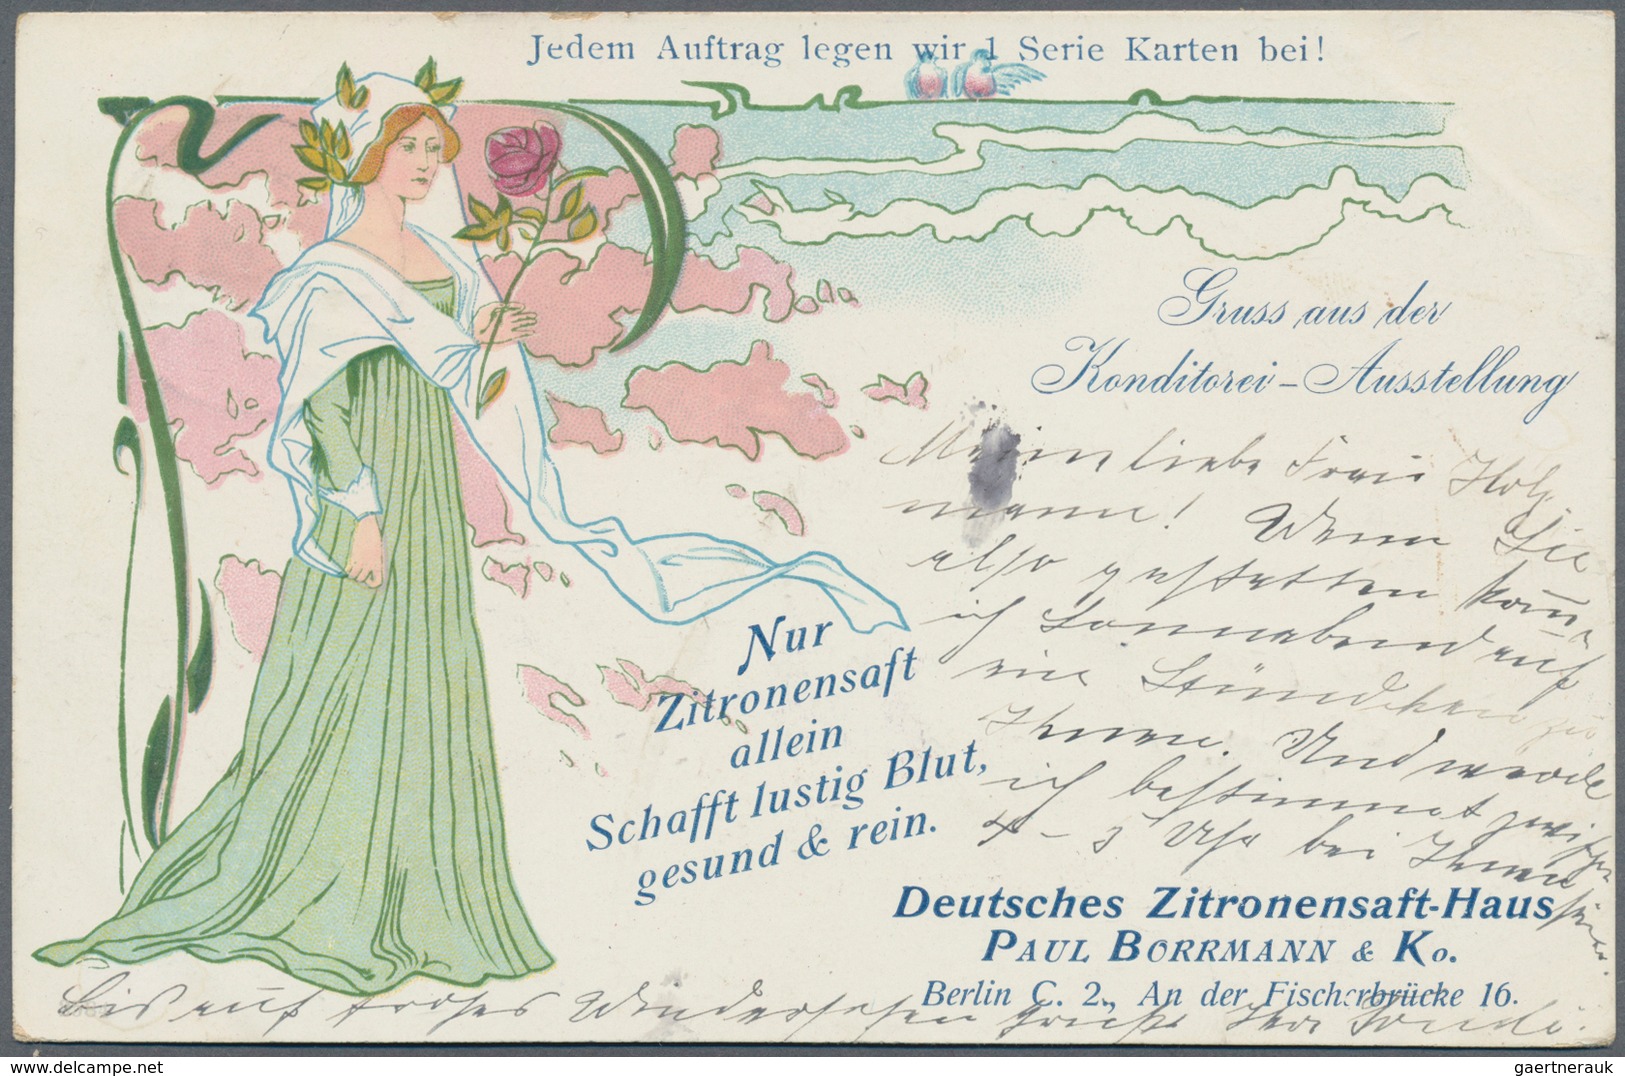 Jedem Auftrag legen wir 1 Serie Karten bei!
Gruss aus der
Konditorei-Ausstellung
Meine liebe Frau Holz-
mann! Wenn Sie
also gestatten komme
ich Sonnabend auf
ein Stündchen zu
Ihnen. Und werde
ich bestimmt zwischen
4-5 Uhr bei Ihnen
sein.
Nur
Zitronensaft
allein
Schafft lustig Blut,
gesund & rein.
Deutsches Zitronensaft-Haus
PAUL BORRMANN & Ko.
Berlin C. 2., An der Fischerbrücke 16.
Bis auf frohes Wiedersehen grüßt Ihre
gaertnerauk